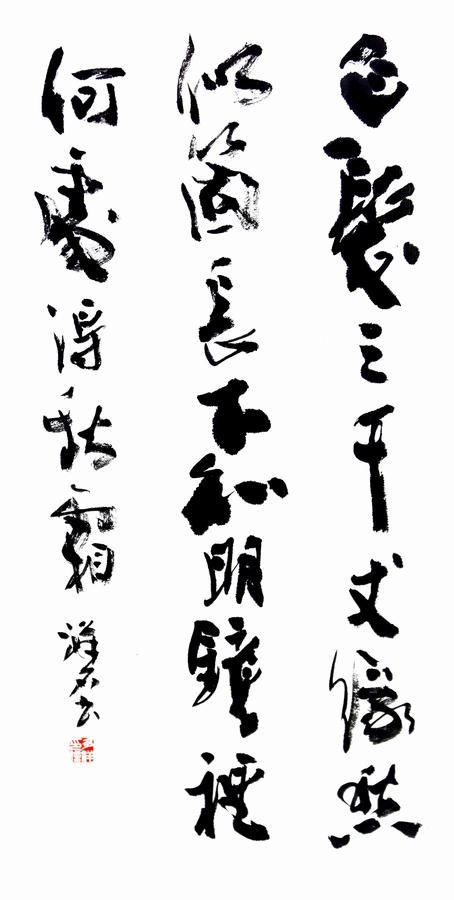 白髪三千丈縁愁
似箇長不知明鏡裡
何處得秋霜